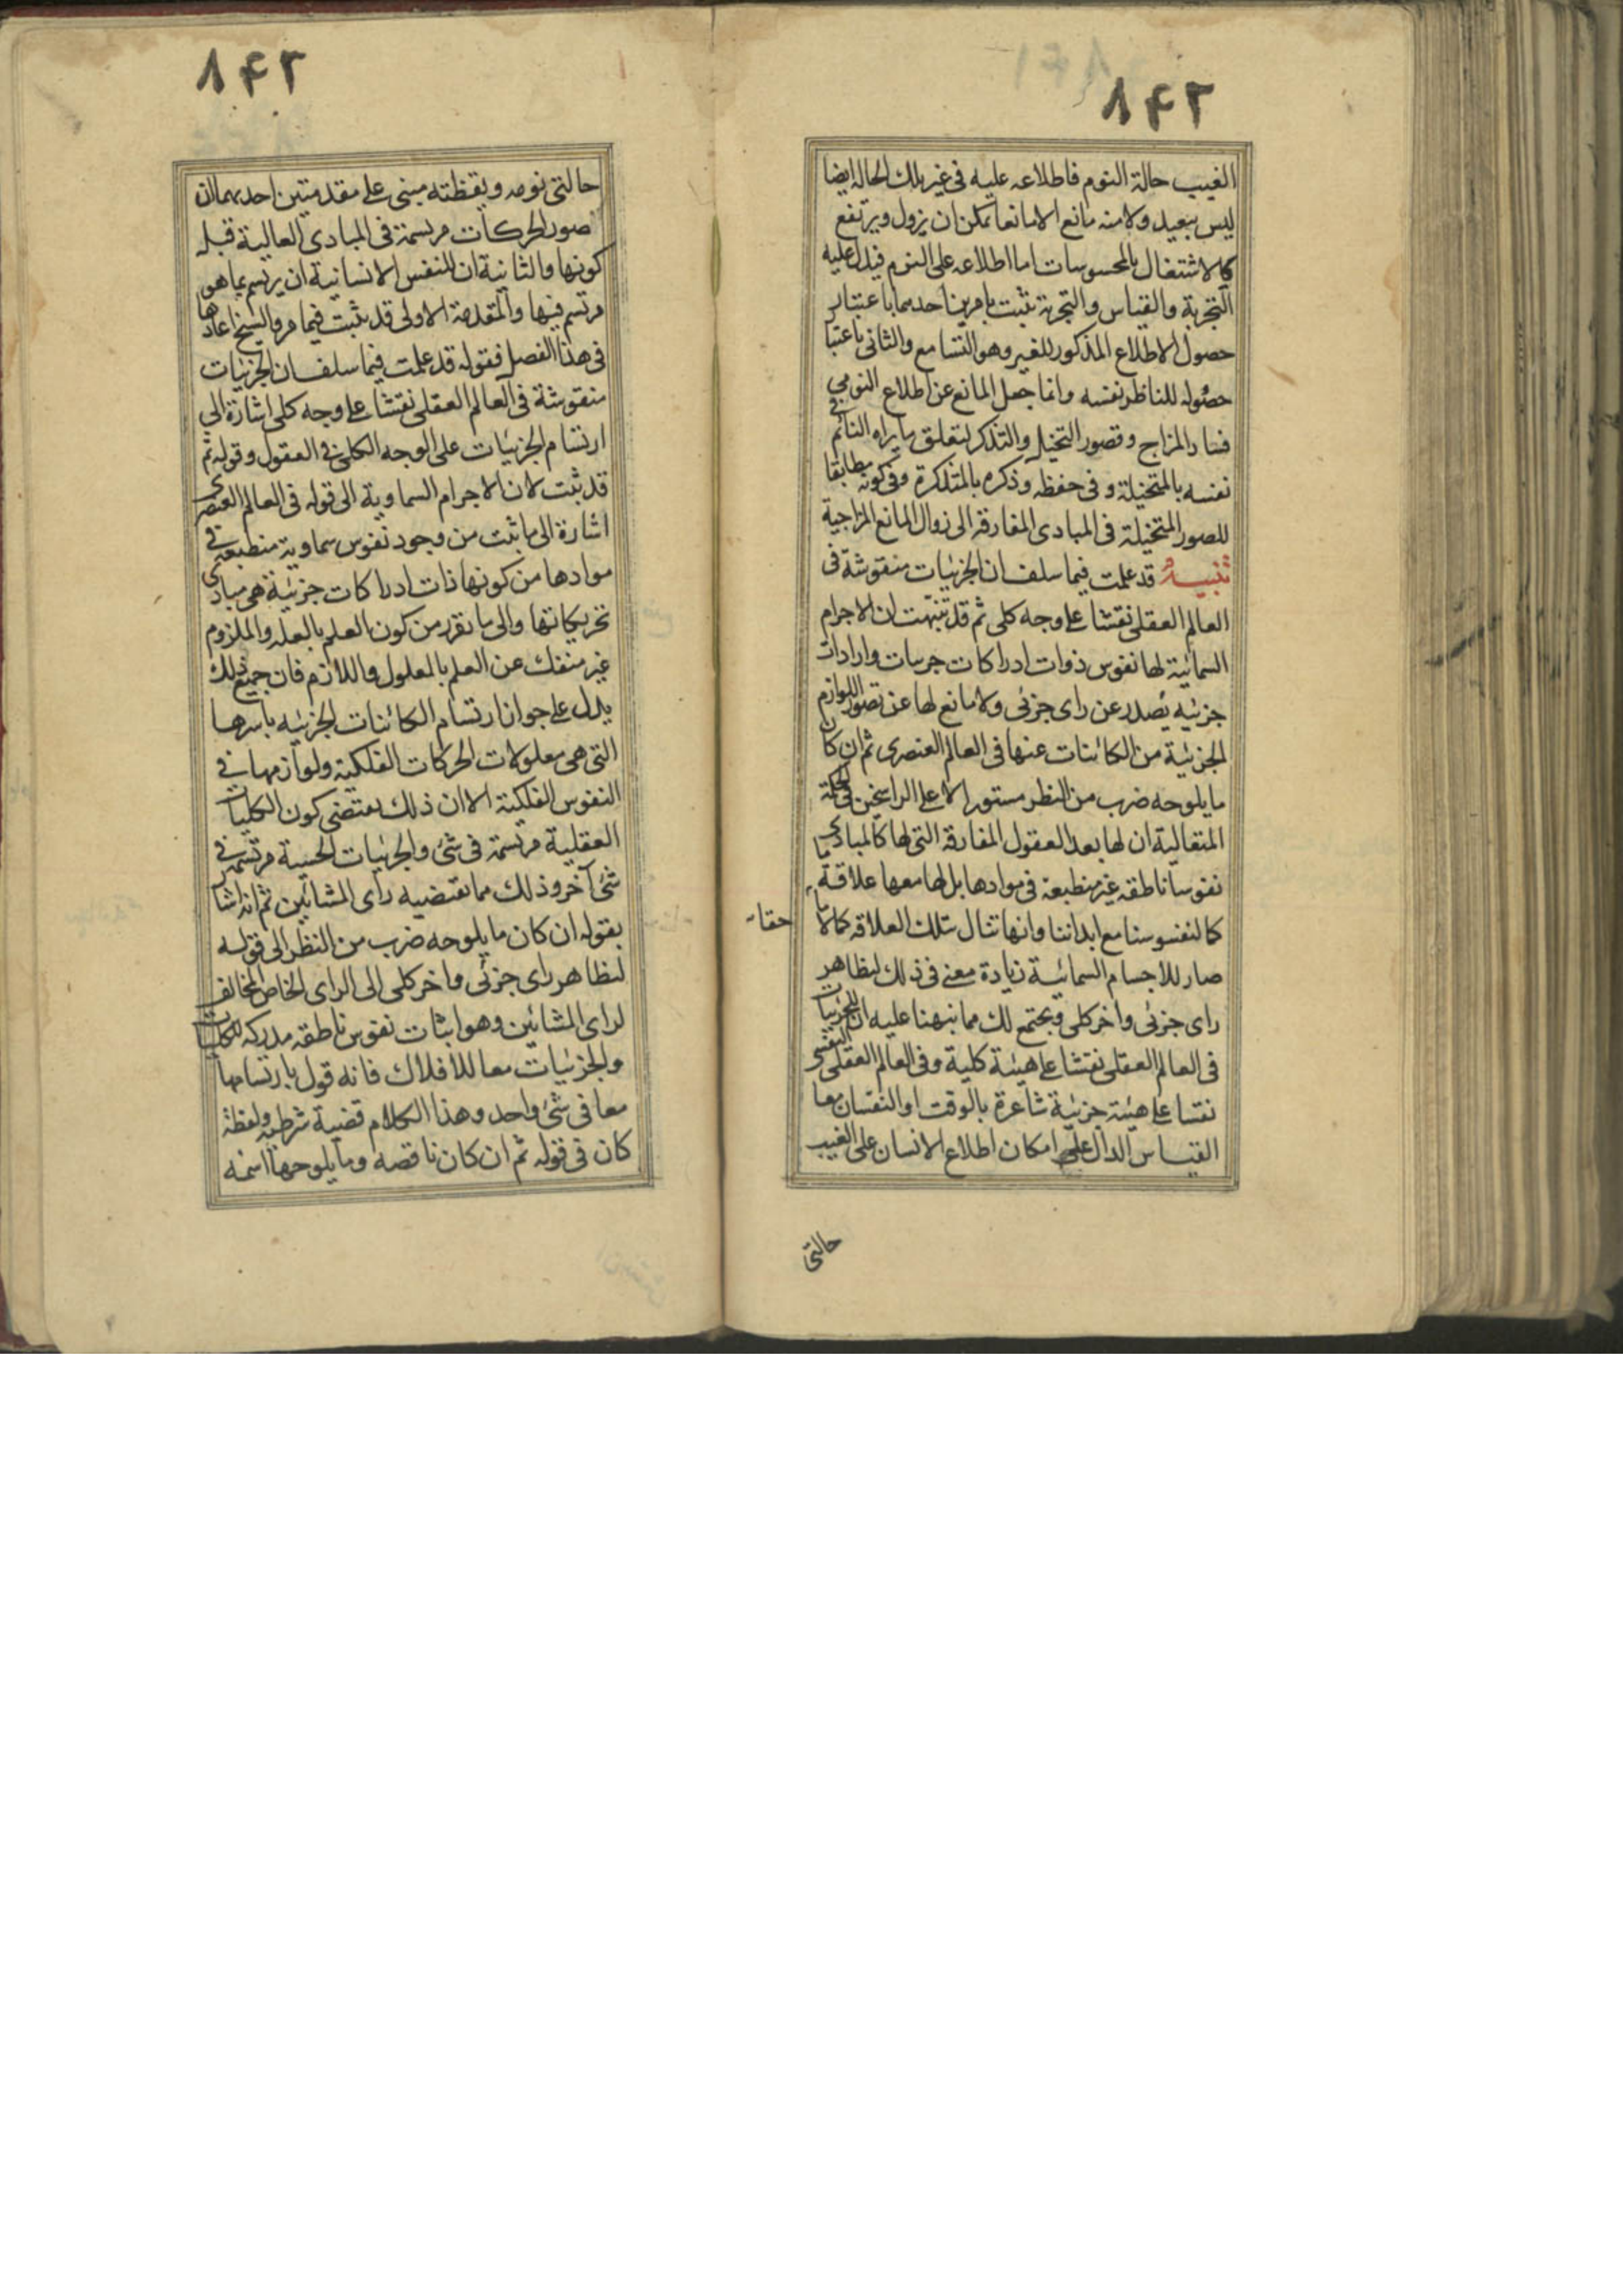 ١٤٢
الغيب حالة النوم فاطلاعه عليه فى غير تلك الحاله ايضا
ليس ببعيد ولا منه مانع الا مانعا يمكن ان يزول ويرتفع
كالاشتغال بالمحسوسات اما اطلاعه على النوم فيدل عليه
التجربة والقياس والتجربة تثبت بامرين احدهما باعتبار
حصول الاطلاع المذكور للغير وهو التسامع والثانى باعتبا
حصوله للناظر نفسه وانما جعل المانع عن اطلاع النومى
فساد المزاج وقصور التخيل والتذكر لتعلق ما يراه النائم فى
نفسه بالمتخيلة وفى حفظه وذكره بالمتذكرة وفى كونه مطابقا
للصور المتخيلة فى المبادى المفارقه الى زوال المانع المزاجية
تنبيه قد علمت فيما سلف ان الجزئيات منقوشة فى
العالم العقلى نقشا على وجه كلى ثم قد تنبهت لان الاجرام
السمائية لها نفوس ذوات ادراكات جرسات وارادات
جزئيه يصدر عن راى جزئى ولا مانع لها عن تصور اللوازم
الجزئية من الكائنات عنها فى العالم العنصرى ثم ان كان
ما يلوحه ضرب من النظر مستورا الا على الراسخين فى الحكمة
المتعالية ان لها بعد العقول المفارقه التى لها كالمبادى
نفوسا ناطقه غير منطبعة فى موادها بل لها معها علاقة ما
كالنفوسنا مع ابداننا وانها تنال بتلك العلاقه كمالا ما
حقا
صار للاجسام السمائية زيادة معنى فى ذلك لتظاهر
راى جزئى واخر كلى ويجتمع لك مما نبهنا عليه ان للجزئيات
فى العالم العقلى نقشا على هيئة كلية وفى العالم العقلى النفسى
نقشا على هيئة جزئية شاعرة بالوقت او النقشان معا
القياس الدال على امكان اطلاع الانسان على الغيب
حالتى
١٤٢
حالتى نومه ويقظته مبنى على مقدمتين احديهما ان
صور الحركات مرتسمة فى المبادى العالية قبل
كونها والثانية ان للنفس الانسانية ان يرتسم بما هو
مرتسم فيها والمقدمة الاولى قد ثبت فيما مر والشيخ اعادها
فى هذا الفصل فقوله قد علمت فيما سلف ان الجزئيات
منقوشة فى العالم العقلى نقشا على وجه كلى اشارة الى
ارتسام الجزئيات على الوجه الكلى فى العقول وقوله ثم
قد ثبت لان الاجرام السماوية الى قوله فى العالم العنصرى
اشارة الى ما ثبت من وجود نفوس سماوية منطبعة فى
موادها من كونها ذات ادراكات جزئية هى مبادى
تحريكاتها والى ما تقرر من كون العلم بالعله والملزوم
غير منفك عن العلم بالمعلول واللازم فان جميع ذلك
يدل على جواز ارتسام الكائنات الجزئيه باسرها
التى هى معلولات الحركات الفلكية ولوازمها فى
النفوس الفلكية الا ان ذلك يقتضى كون الكليات
العقلية مرتسمة فى شئ والجزئيات الحسية مرتسمة فى
شئ آخر وذلك مما تقتضيه راى المشائين ثم انه اشار
بقوله ان كان ما يلوحه ضرب من النظر الى قوله
لتظاهر راى جزئى واخر كلى الى الراى الخاص المخالف
لراى المشائين وهو اثبات نفوس ناطقه مدركه للكليات
والجزئيات معا للافلاك فانه قول بارتسامها
معا فى شئ واحد وهذا الكلام قضية شرطيه ولفظة
كان فى قوله ثم ان كان ناقصه وما يلوحها اسمه